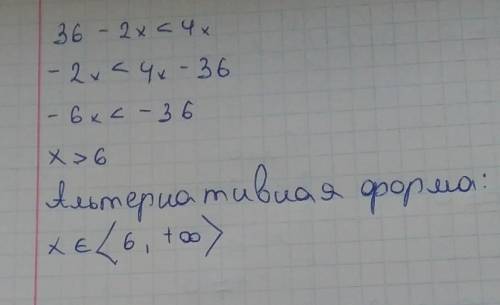 36 - 2x < 4x
- 2x < 4x - 36
- 6x < - 36
x > 6
Альтернативная форма:
x ∈ ⟨6, +∞⟩